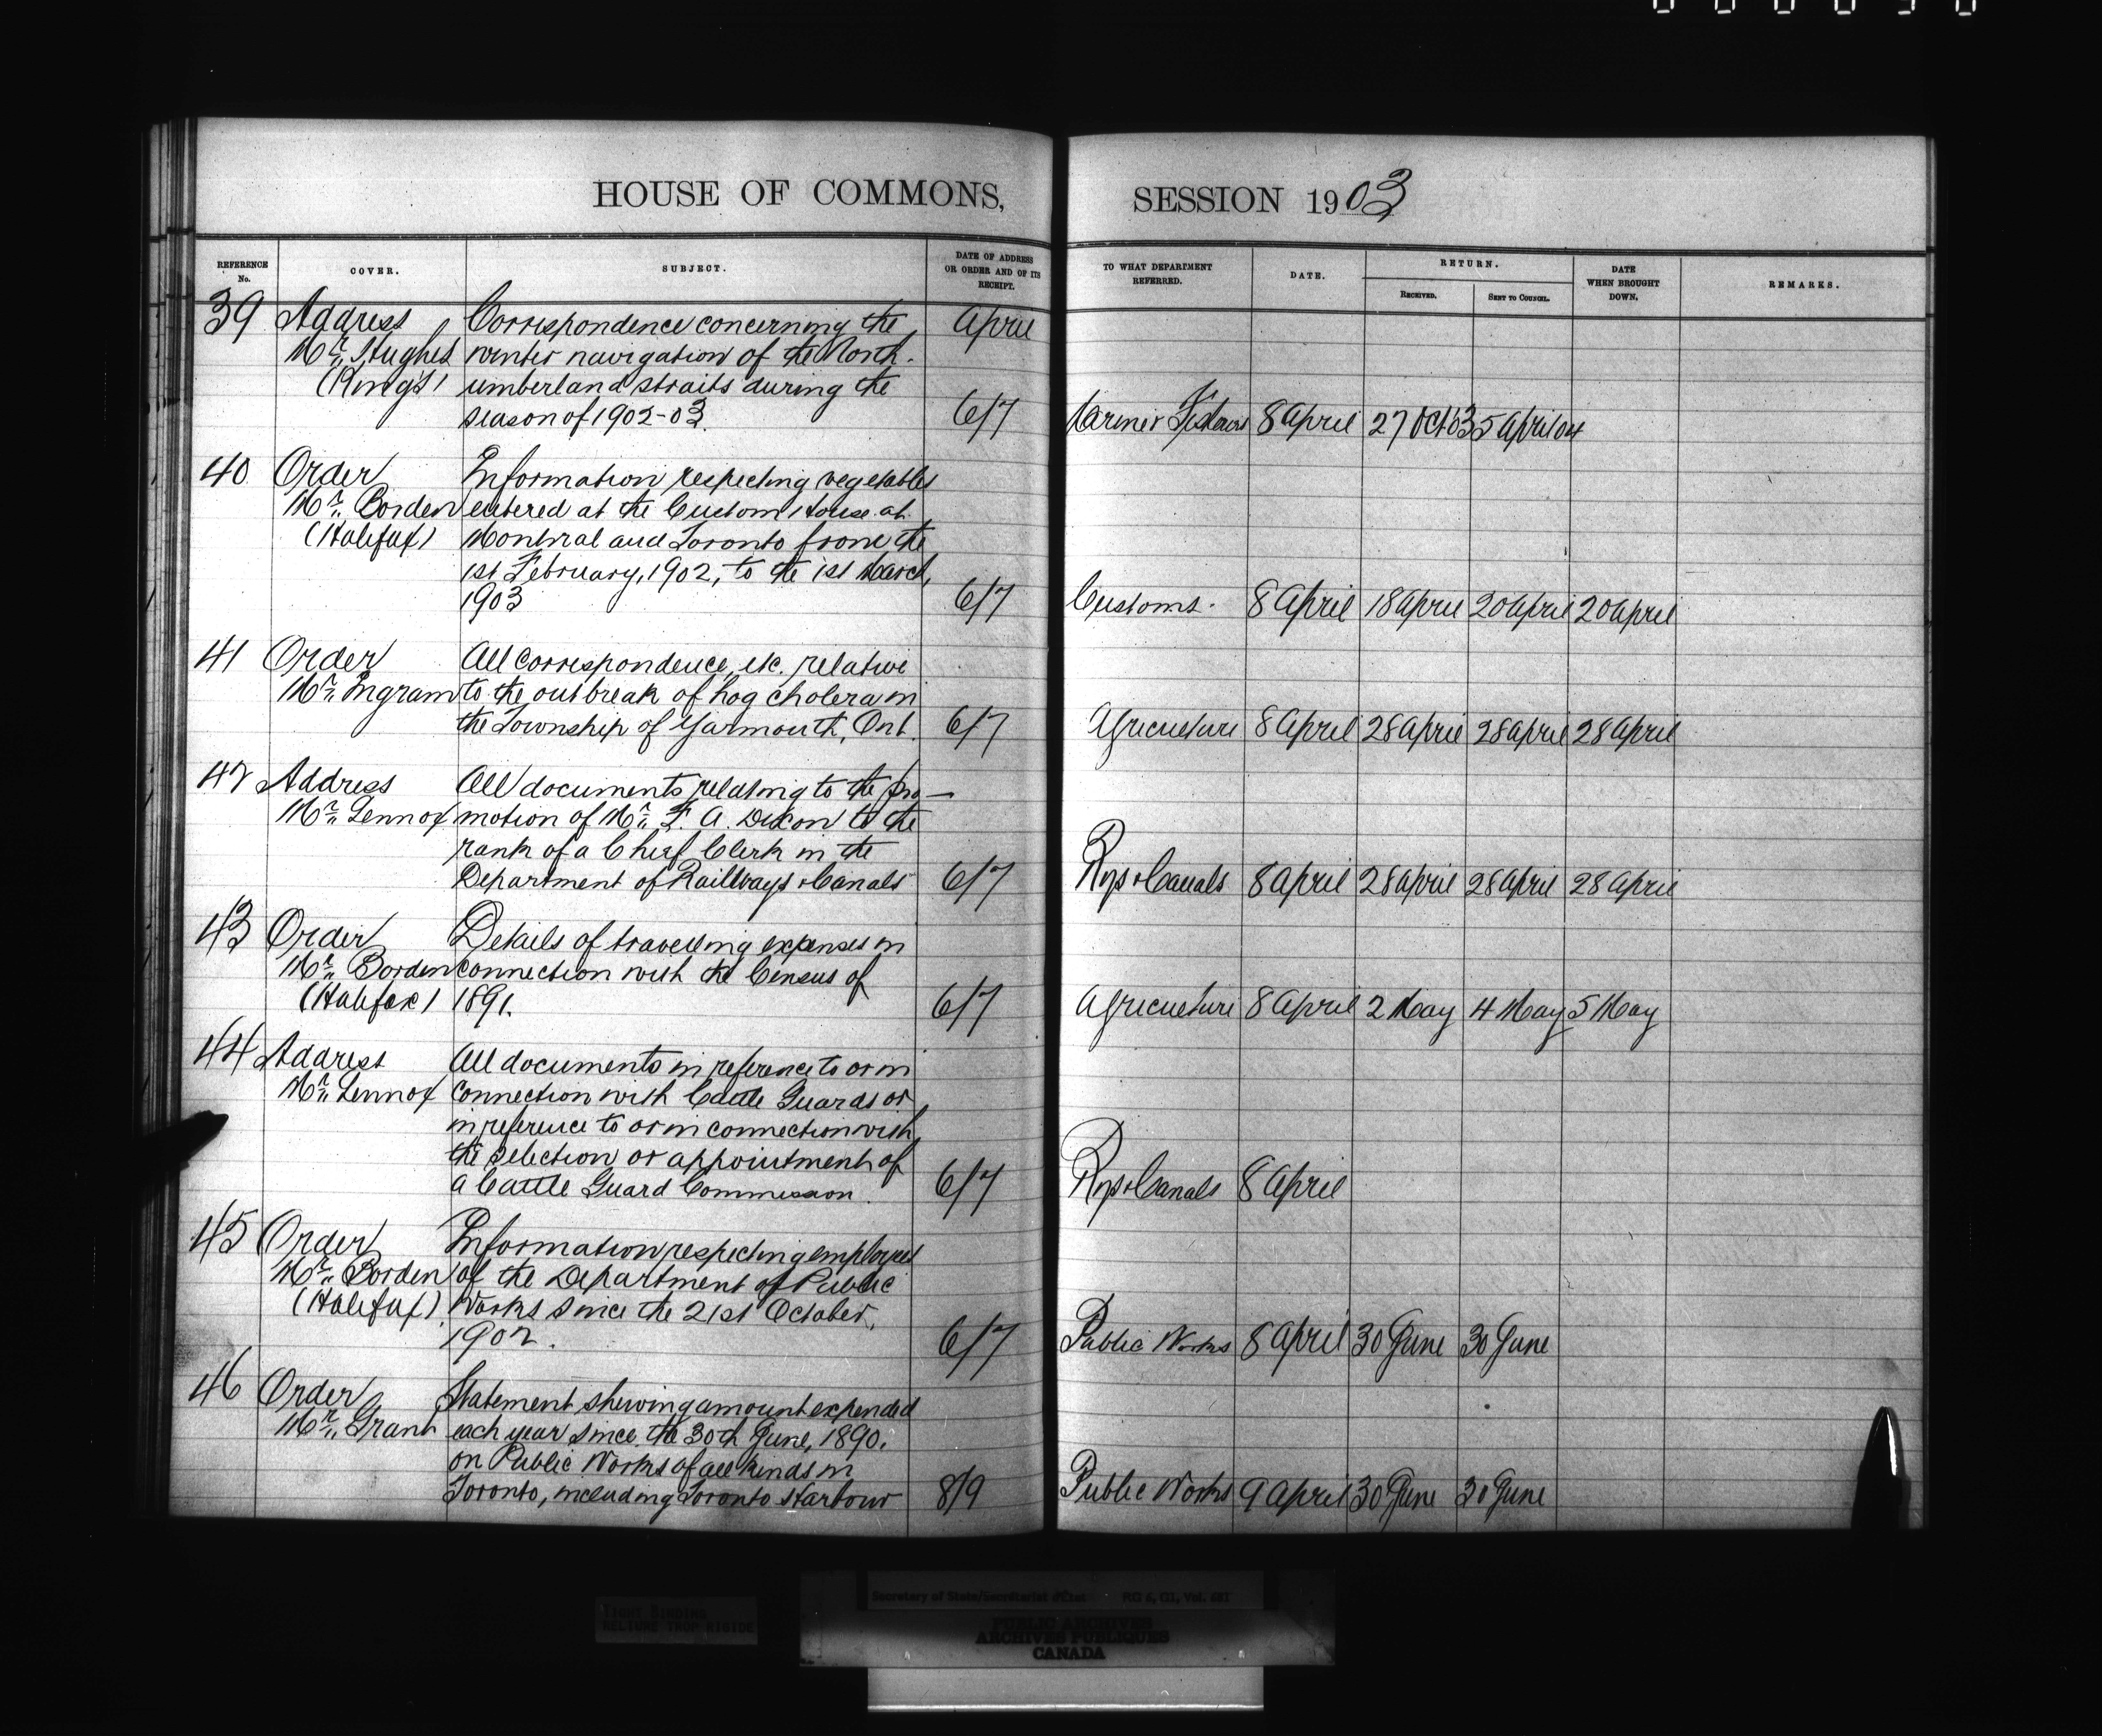 HOUSE OF COMMONS,
REFERENCE No.
COVER.
SUBJECT.
DATE OF ADDRESS OR ORDER AND OF ITS RECEIPT.
39 Address Correspondence concerning the April
Mr. Hughes winter navigation of the North-
(King's) umberland straits during the
season of 1902-03. 6/7
40 Order Information respecting vegetables
Mr. Borden entered at the Custom House at
(Halifax) Montreal and Toronto from the
1st February, 1902, to the 1st March,
1903 6/7
41 Order All correspondence, etc. relative
Mr. Ingram to the outbreak of hog cholera in
the Township of Yarmouth, Ont. 6/7
42 Address All documents relating to the pro-
Mr. Lennox motion of Mr. F. A. Dixon to the
rank of a Chief Clerk in the
Department of Railways & Canals 6/7
43 Order Details of travelling expenses in
Mr. Borden connection with the Census of
(Halifax) 1891. 6/7
44 Address All documents in reference to or in
Mr. Lennox connection with Cattle Guards or
in reference to or in connection with
the selection or appointment of
a Cattle Guard Commission. 6/7
45 Order Information respecting employees
Mr. Borden of the Department of Public
(Halifax) Works since the 21st October,
1902. 6/7
46 Order Statement shewing amount expended
Mr. Grant each year since the 30th June, 1890.
on Public Works of all kinds in
Toronto, including Toronto Harbour 8/9
SESSION 1903
TO WHAT DEPARTMENT REFERRED.
DATE.
RETURN.
RECEIVED.
SENT TO COUNCIL.
DATE WHEN BROUGHT DOWN.
REMARKS.
Marine & Fisheries 8 April 27 Oct 03 5 April 04
Customs. 8 April 18 April 20 April 20 April
Agriculture 8 April 28 April 28 April 28 April
Rys & Canals 8 April 28 April 28 April 28 April
Agriculture 8 April 2 May 4 May 5 May
Rys & Canals 8 April
Public Works 8 April 30 June 30 June
Public Works 9 April 30 June 30 June
TIGHT BINDING
RELIURE TROP RIGIDE
Secretary of State/Secrétariat d'État RG 6, G1, Vol. 681
PUBLIC ARCHIVES
ARCHIVES PUBLIQUES
CANADA